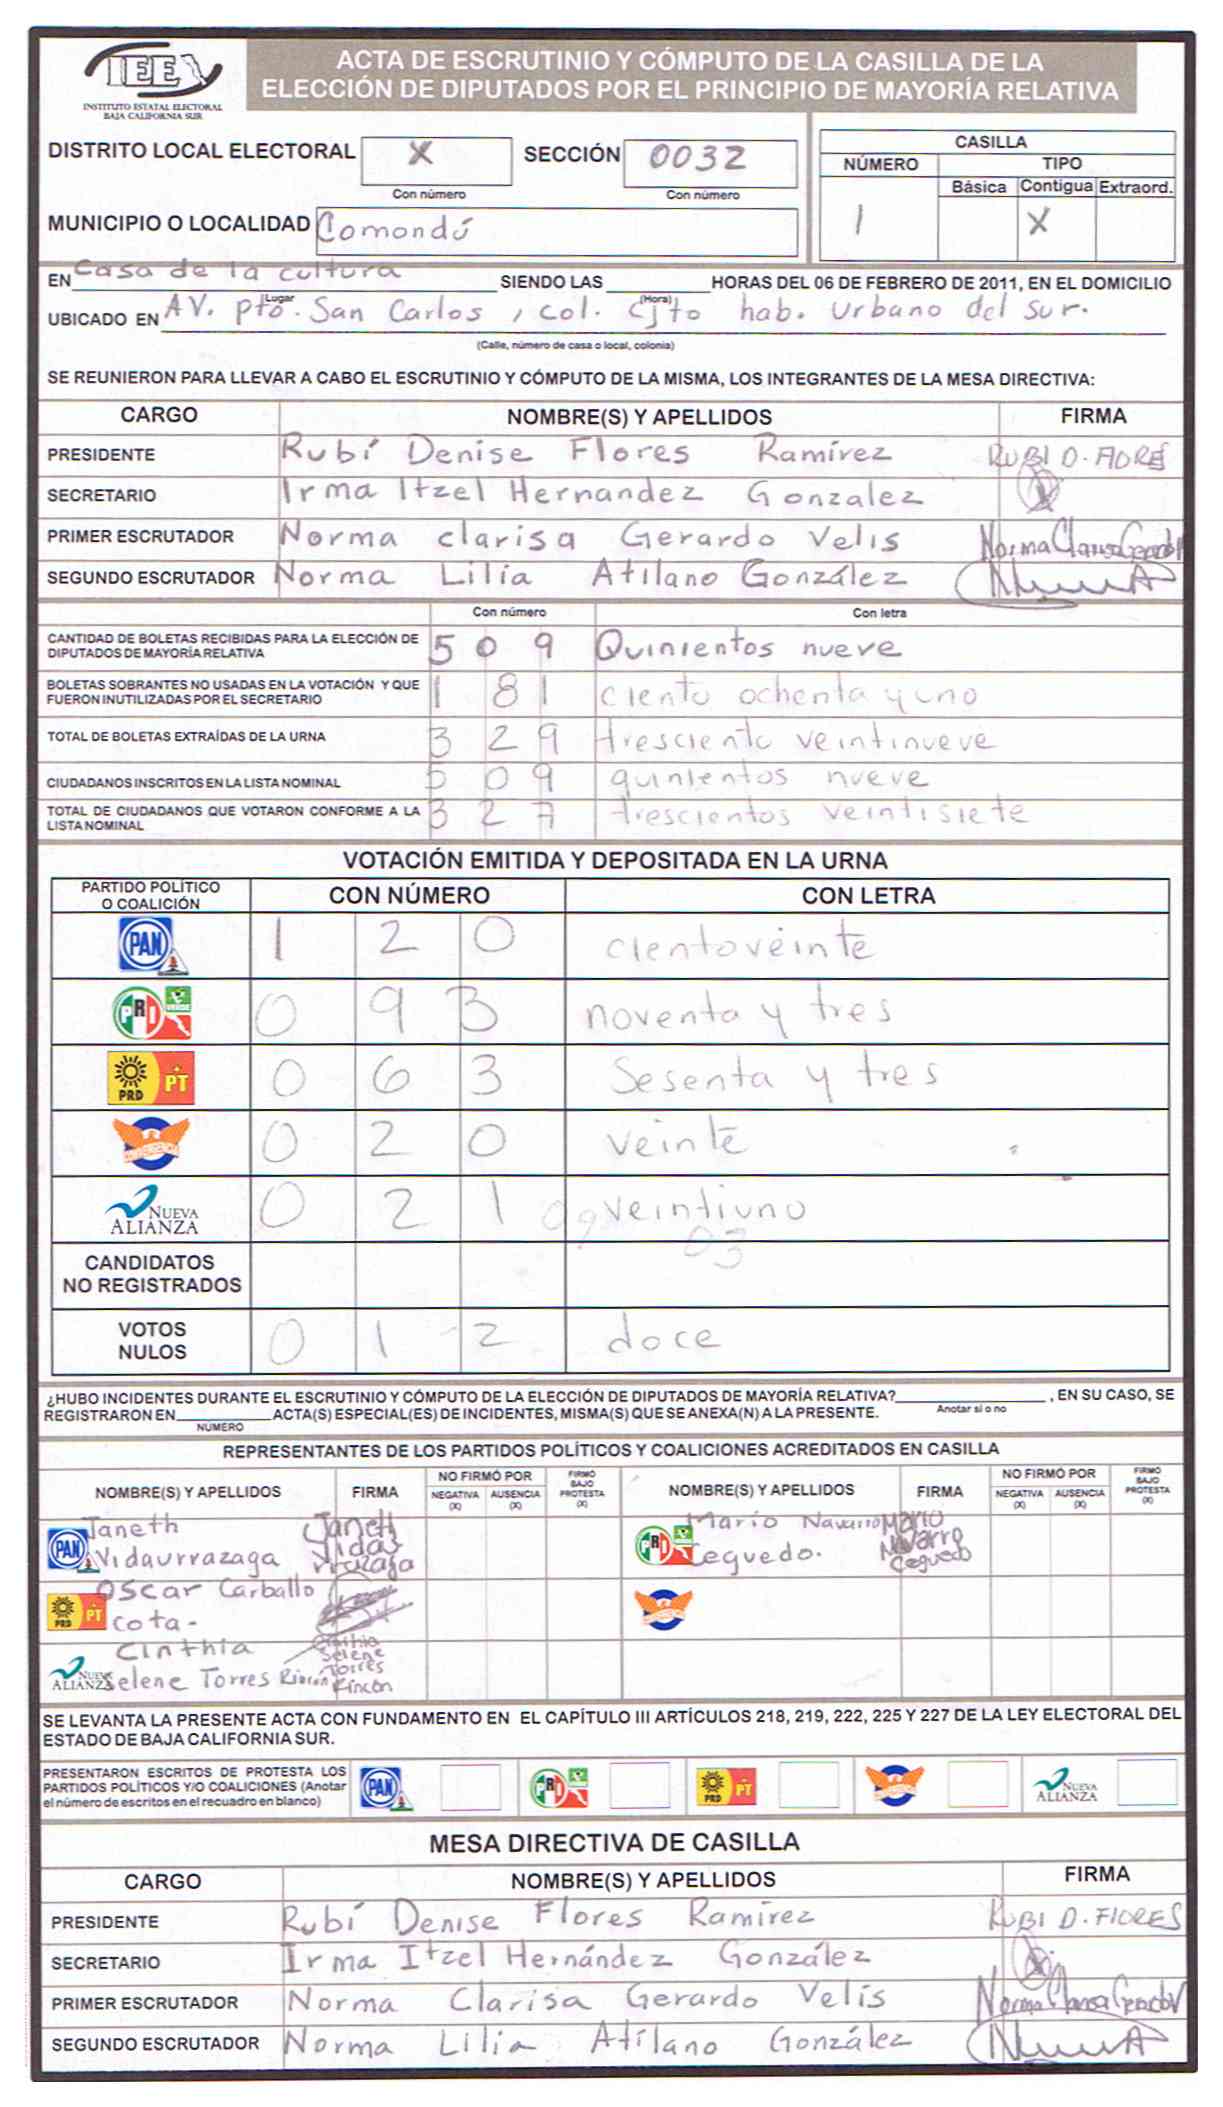 IEE
INSTITUTO ESTATAL ELECTORAL
BAJA CALIFORNIA SUR
ACTA DE ESCRUTINIO Y CÓMPUTO DE LA CASILLA DE LA
ELECCIÓN DE DIPUTADOS POR EL PRINCIPIO DE MAYORÍA RELATIVA
DISTRITO LOCAL ELECTORAL X SECCIÓN 0032
Con número Con número
CASILLA
NÚMERO TIPO
Básica Contigua Extraord.
1 X
MUNICIPIO O LOCALIDAD Comondú
EN Casa de la cultura SIENDO LAS HORAS DEL 06 DE FEBRERO DE 2011, EN EL DOMICILIO
Lugar (Hora)
UBICADO EN AV. pto. San Carlos, col. Cjto hab. Urbano del Sur.
(Calle, número de casa o local, colonia)
SE REUNIERON PARA LLEVAR A CABO EL ESCRUTINIO Y CÓMPUTO DE LA MISMA, LOS INTEGRANTES DE LA MESA DIRECTIVA:
CARGO NOMBRE(S) Y APELLIDOS FIRMA
PRESIDENTE Rubí Denise Flores Ramírez RUBI D. FLORES
SECRETARIO Irma Itzel Hernandez Gonzalez
PRIMER ESCRUTADOR Norma clarisa Gerardo Velis Norma Clarisa Gerardo V
SEGUNDO ESCRUTADOR Norma Lilia Atilano González
Con número Con letra
CANTIDAD DE BOLETAS RECIBIDAS PARA LA ELECCIÓN DE
DIPUTADOS DE MAYORÍA RELATIVA 5 0 9 Quinientos nueve
BOLETAS SOBRANTES NO USADAS EN LA VOTACIÓN Y QUE
FUERON INUTILIZADAS POR EL SECRETARIO 1 8 1 ciento ochenta y uno
TOTAL DE BOLETAS EXTRAÍDAS DE LA URNA 3 2 9 tresciento veintinueve
CIUDADANOS INSCRITOS EN LA LISTA NOMINAL 5 0 9 quinientos nueve
TOTAL DE CIUDADANOS QUE VOTARON CONFORME A LA
LISTA NOMINAL 3 2 7 trescientos veintisiete
VOTACIÓN EMITIDA Y DEPOSITADA EN LA URNA
PARTIDO POLÍTICO
O COALICIÓN CON NÚMERO CON LETRA
PAN 1 2 0 cientoveinte
PRI VERDE 0 9 3 noventa y tres
PRD PT 0 6 3 Sesenta y tres
CONVERGENCIA 0 2 0 veinte
NUEVA
ALIANZA 0 2 1 veintiuno
03
CANDIDATOS
NO REGISTRADOS
VOTOS
NULOS 0 1 2 doce
¿HUBO INCIDENTES DURANTE EL ESCRUTINIO Y CÓMPUTO DE LA ELECCIÓN DE DIPUTADOS DE MAYORÍA RELATIVA? , EN SU CASO, SE
Anotar si o no
REGISTRARON EN ACTA(S) ESPECIAL(ES) DE INCIDENTES, MISMA(S) QUE SE ANEXA(N) A LA PRESENTE.
NUMERO
REPRESENTANTES DE LOS PARTIDOS POLÍTICOS Y COALICIONES ACREDITADOS EN CASILLA
NOMBRE(S) Y APELLIDOS FIRMA NO FIRMÓ POR NEGATIVA (X) AUSENCIA (X) FIRMÓ BAJO PROTESTA (X) NOMBRE(S) Y APELLIDOS FIRMA NO FIRMÓ POR NEGATIVA (X) AUSENCIA (X) FIRMÓ BAJO PROTESTA (X)
PAN Janeth Vidaurrazaga Janeth Vidaurrazaga PRI Mario Navarro Ceguedo. Mario Navarro Ceguedo
PRD PT Oscar Carballo Cota-
NUEVA ALIANZA Cinthia Selene Torres Rincón Cinthia Selene Torres Rincón
SE LEVANTA LA PRESENTE ACTA CON FUNDAMENTO EN EL CAPÍTULO III ARTÍCULOS 218, 219, 222, 225 Y 227 DE LA LEY ELECTORAL DEL
ESTADO DE BAJA CALIFORNIA SUR.
PRESENTARON ESCRITOS DE PROTESTA LOS
PARTIDOS POLÍTICOS Y/O COALICIONES (Anotar
el número de escritos en el recuadro en blanco)
PAN PRI PRD PT NUEVA ALIANZA
MESA DIRECTIVA DE CASILLA
CARGO NOMBRE(S) Y APELLIDOS FIRMA
PRESIDENTE Rubí Denise Flores Ramirez RUBI D. FLORES
SECRETARIO Irma Itzel Hernández González
PRIMER ESCRUTADOR Norma Clarisa Gerardo Velis Norma Clarisa Gerardo V
SEGUNDO ESCRUTADOR Norma Lilia Atilano González